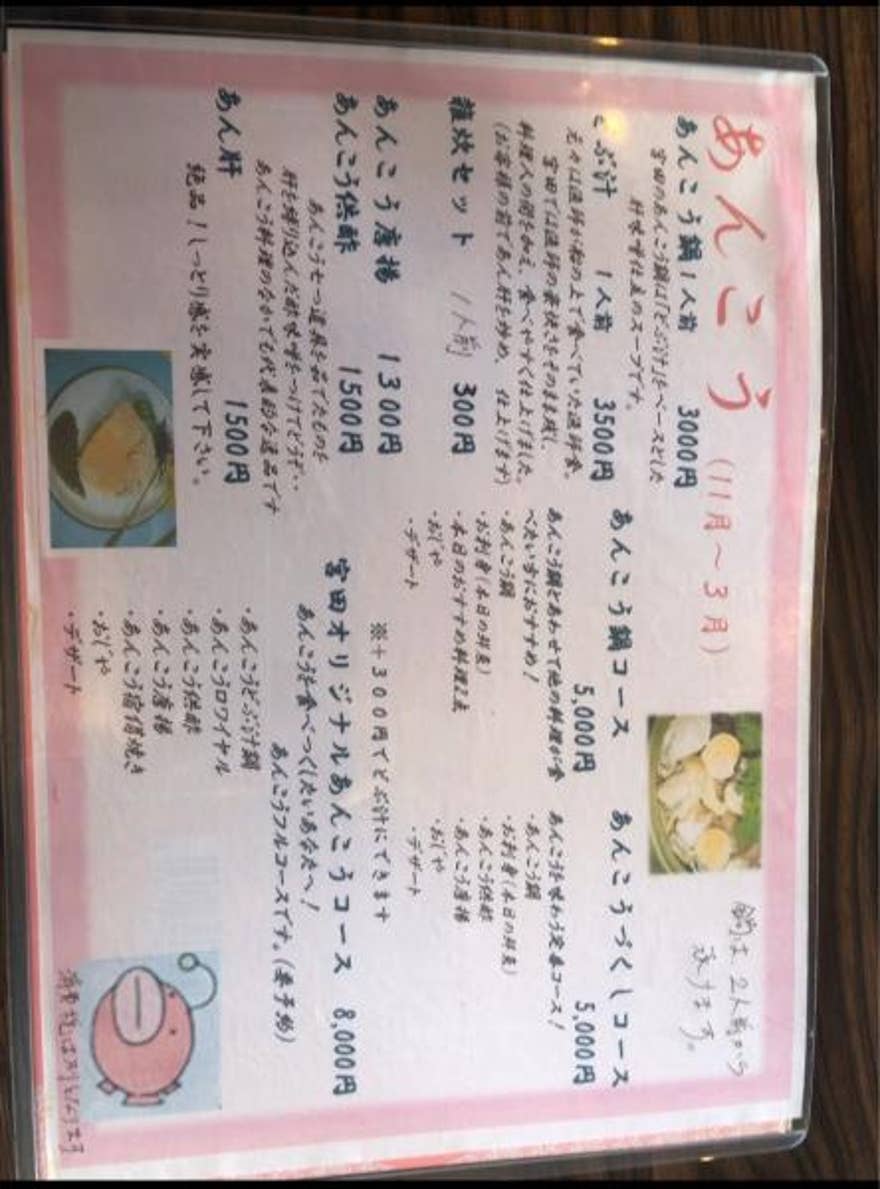 あんこう(11月～3月)
鍋は2人前から
承ります。
あんこう鍋 1人前 3000円
宮田のあんこう鍋は「どぶ汁」をベースとした
肝味噌仕立のスープです。
どぶ汁 1人前 3500円
元々は漁師が船の上で食べていた漁師食。
宮田では漁師の豪快さをそのまま残し、
料理人の間を加え、食べやすく仕上げました。
(お客様の前であん肝を炒め、仕上げます)
雑炊セット 1人前 300円
あんこう唐揚 1300円
あんこう供酢 1500円
あんこう七つ道具を茹でたものを
肝を練り込んだ酢味噌をつけてどうぞ‥
あんこう料理のなかでも代表的な逸品です
あん肝 1500円
絶品！しっとり感を実感して下さい。
あんこう鍋コース
5,000円
あんこう鍋とあわせて他の料理が食
べたい方におすすめ！
・あんこう鍋
・お刺身(本日の鮮魚)
・本日のおすすめ料理2点
・おじや
・デザート
あんこうづくしコース
5,000円
あんこうを味わう定番コース！
・あんこう鍋
・お刺身(本日の鮮魚)
・あんこう供酢
・あんこう唐揚
・おじや
・デザート
※＋300円でどぶ汁にできます
宮田オリジナルあんこうコース 8,000円
あんこうを食べつくしたいあなたへ！
あんこうフルコースです。(要予約)
・あんこうどぶ汁鍋
・あんこうロワイヤル
・あんこう供酢
・あんこう唐揚
・あんこう宿儺焼き
・おじや
・デザート
消費税は別になります